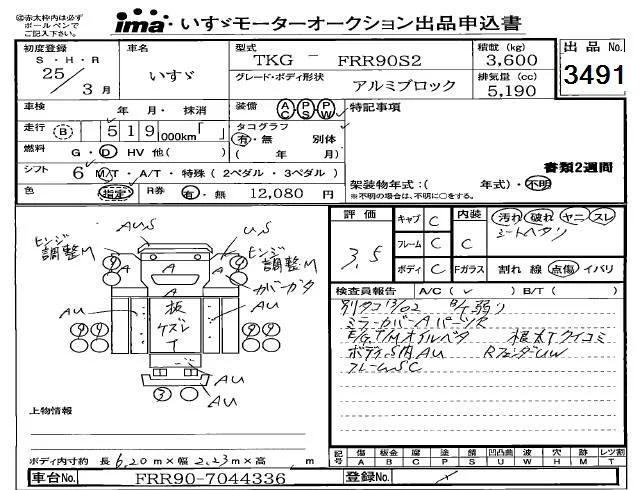 ◎赤太枠内は必ず
ボールペンで
ご記入下さい。
ima いすゞモーターオークション出品申込書
初度登録
S・H・R
25/3月
車名
いすゞ
型式
TKG － FRR90S2
グレード・ボディ形状
アルミブロック
積載 (kg)
3,600
排気量 (cc)
5,190
出品 No.
3491
車検 年 月・抹消
装備 AC PS PW
特記事項
走行 (B) 519 000km「 」
タコグラフ
有・無 別体
( 年 月)
燃料 G・D HV 他( )
シフト 6 M/T・A/T・特殊 (2ペダル・3ペダル)
書類2週間
架装物年式:( 年式)・不明
※不明の場合は、不明に○をする。
色 指定
R券 有・無 12,080 円
評価
3.5
キャブ C
フレーム C
ボディ C
内装 C
汚れ 破れ ヤニ スレ
シートヘタリ
Fガラス 割れ 線 点傷 イバリ
AUS
US
ヒンジ調整M
ヒンジ調整M
カバーガタ
A
A
A
A
AU
AU
板
ケズレ
T
AU
AU
検査員報告 A/C( ✓ ) B/T( )
別タコ13/02 B/T弱り
ミラーカバーAパーツR
E/G,T/Mオイルベタ 根太Tクイコミ
ボディS内AU RフェンダーUW
フレームSC
上物情報
ボディ内寸約 長 6.20 m×幅 2.23 m×高 m
記号 傷 A 板金 B 腐 C 塗 P 錆 S 凹凸曲 U 波 W 穴 H 跡 M レツ割 T
車台No. FRR90-7044336
登録No.